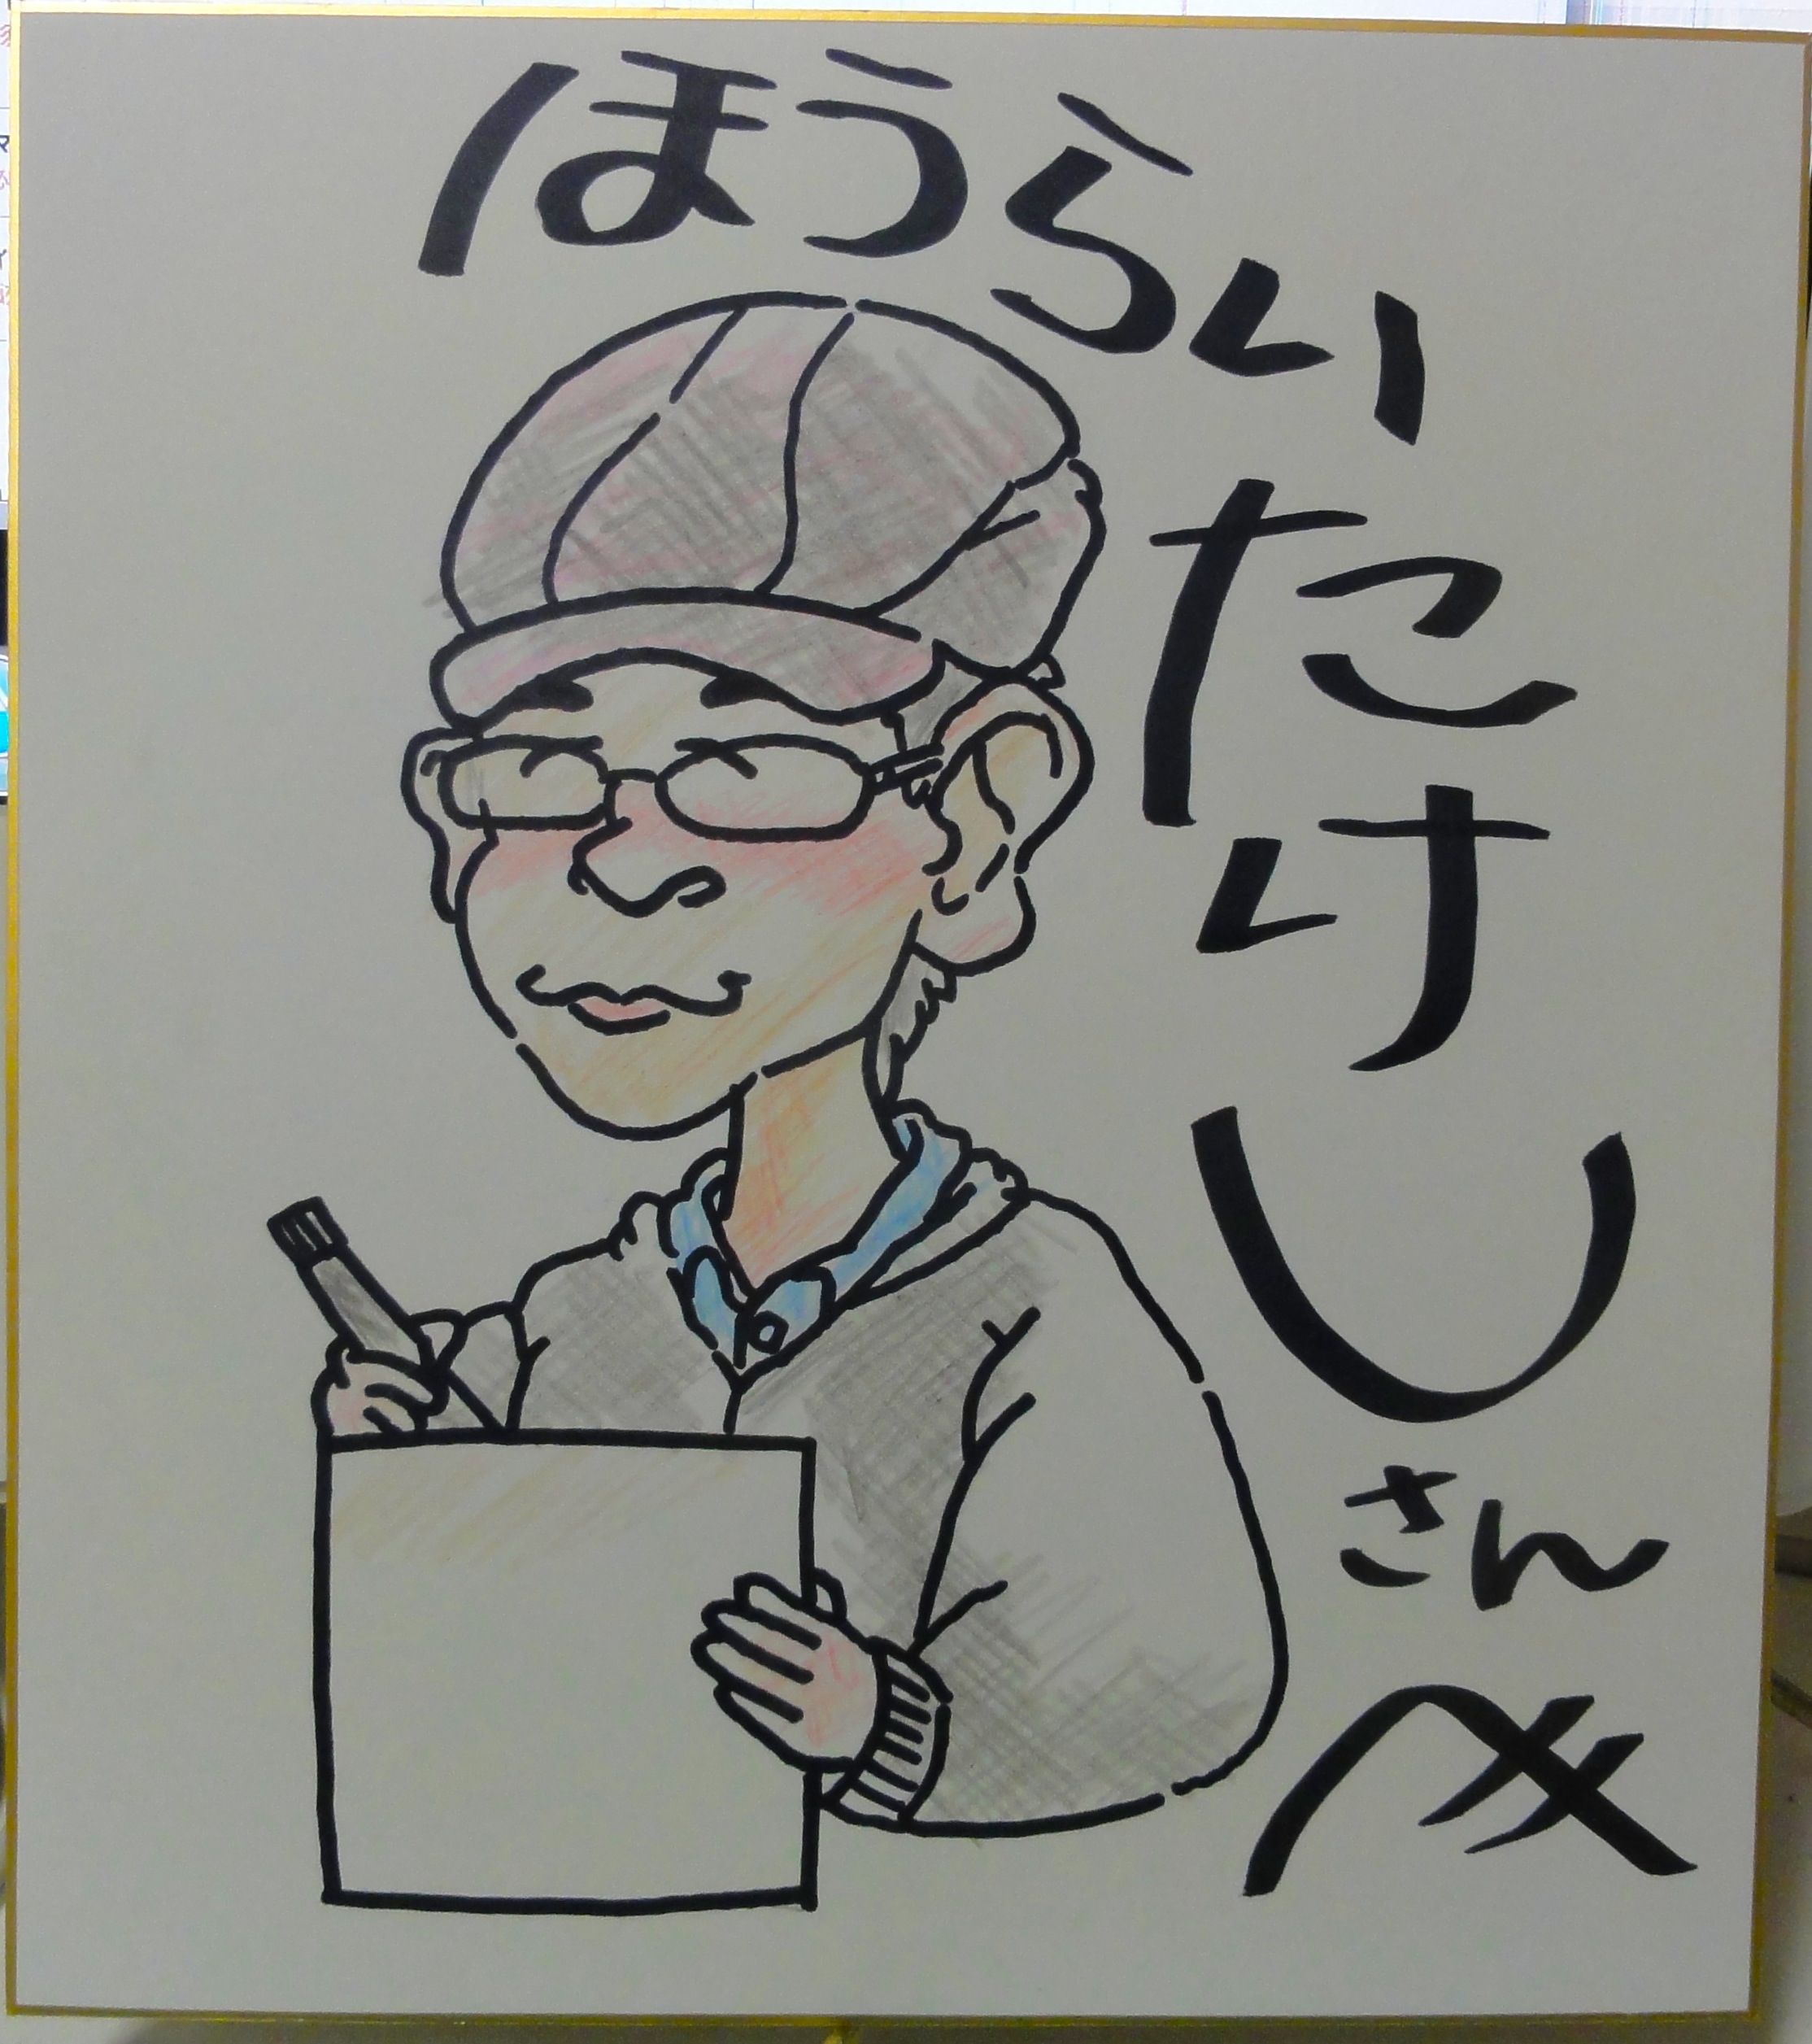 ほうらい
たけし
さん
へ